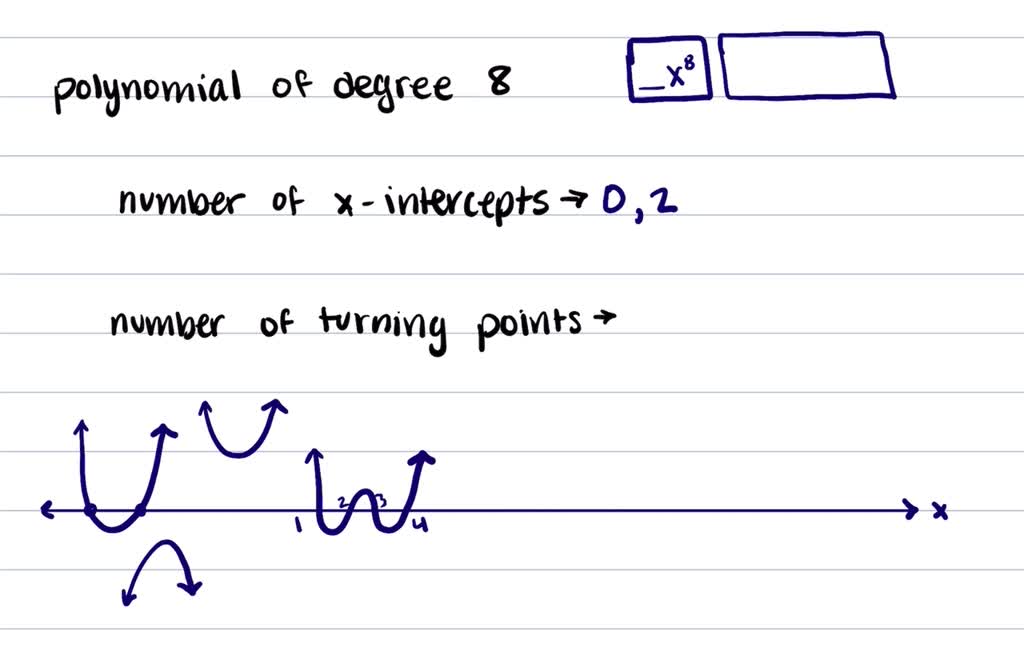 polynomial of degree 8
_x⁸
number of x-intercepts → 0, 2
number of turning points →
1 2 3 4
x